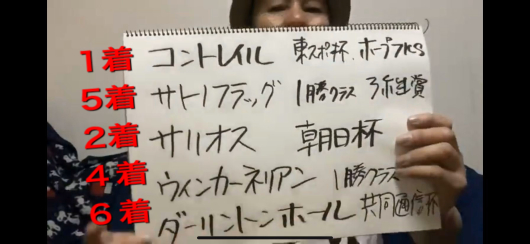 1着 コントレイル 東スポ杯、ホープフルS
5着 サトノフラッグ 1勝クラス 弥生賞
2着 サリオス 朝日杯
4着 ウィンカーネリアン 1勝クラス
6着 ダーリントンホール 共同通信杯